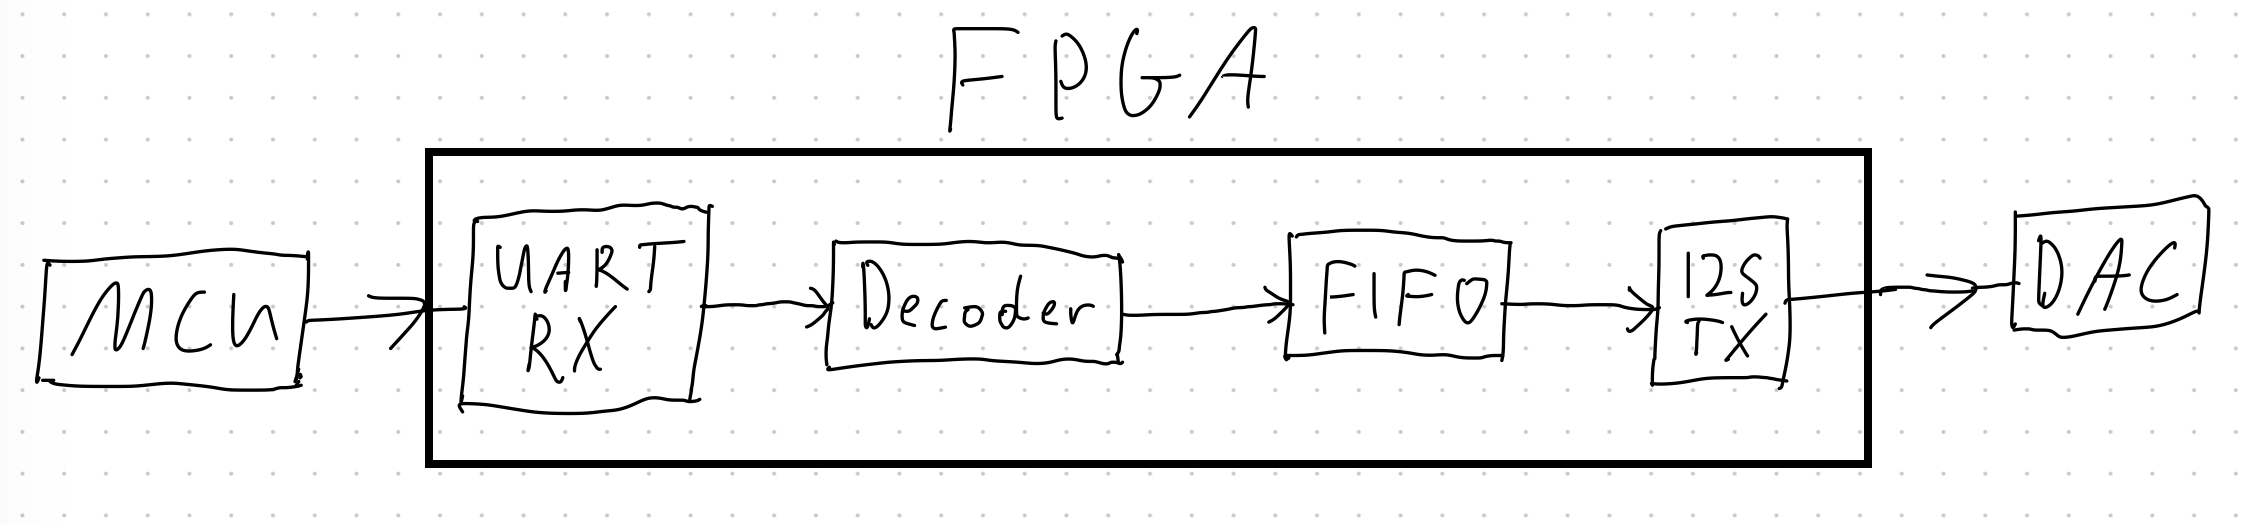 FPGA
MCU
UART
RX
Decoder
FIFO
I2S
TX
DAC